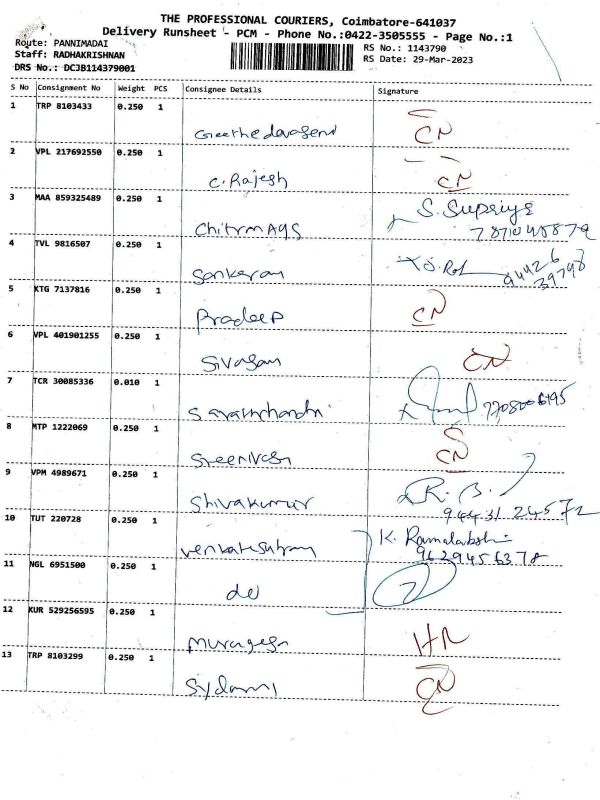 THE PROFESSIONAL COURIERS, Coimbatore-641037
Delivery Runsheet - PCM - Phone No.:0422-3505555 - Page No.:1
Route: PANNIMADAI
Staff: RADHAKRISHNAN
DRS No.: DCJB114379001
RS No.: 1143790
RS Date: 29-Mar-2023
S No Consignment No Weight PCS Consignee Details Signature
1 TRP 8103433 0.250 1
CN
2 VPL 217692550 0.250 1
C. Rajesh CN
3 MAA 859325489 0.250 1
S. Supriya
4 TVL 9816507 0.250 1
Sankaran
94426
39798
5 KTG 7137816 0.250 1
Pradeep CN
6 VPL 401901255 0.250 1
Sivasam CN
7 TCR 30085336 0.010 1
8 MTP 1222069 0.250 1
CN
9 VPM 4989671 0.250 1
Shivakumar R. B.
94431 24572
10 TUT 220728 0.250 1
K. Ramalakshmi
9629456378
11 NGL 6951500 0.250 1
do
12 KUR 529256595 0.250 1
Murugesn
13 TRP 8103299 0.250 1
CN